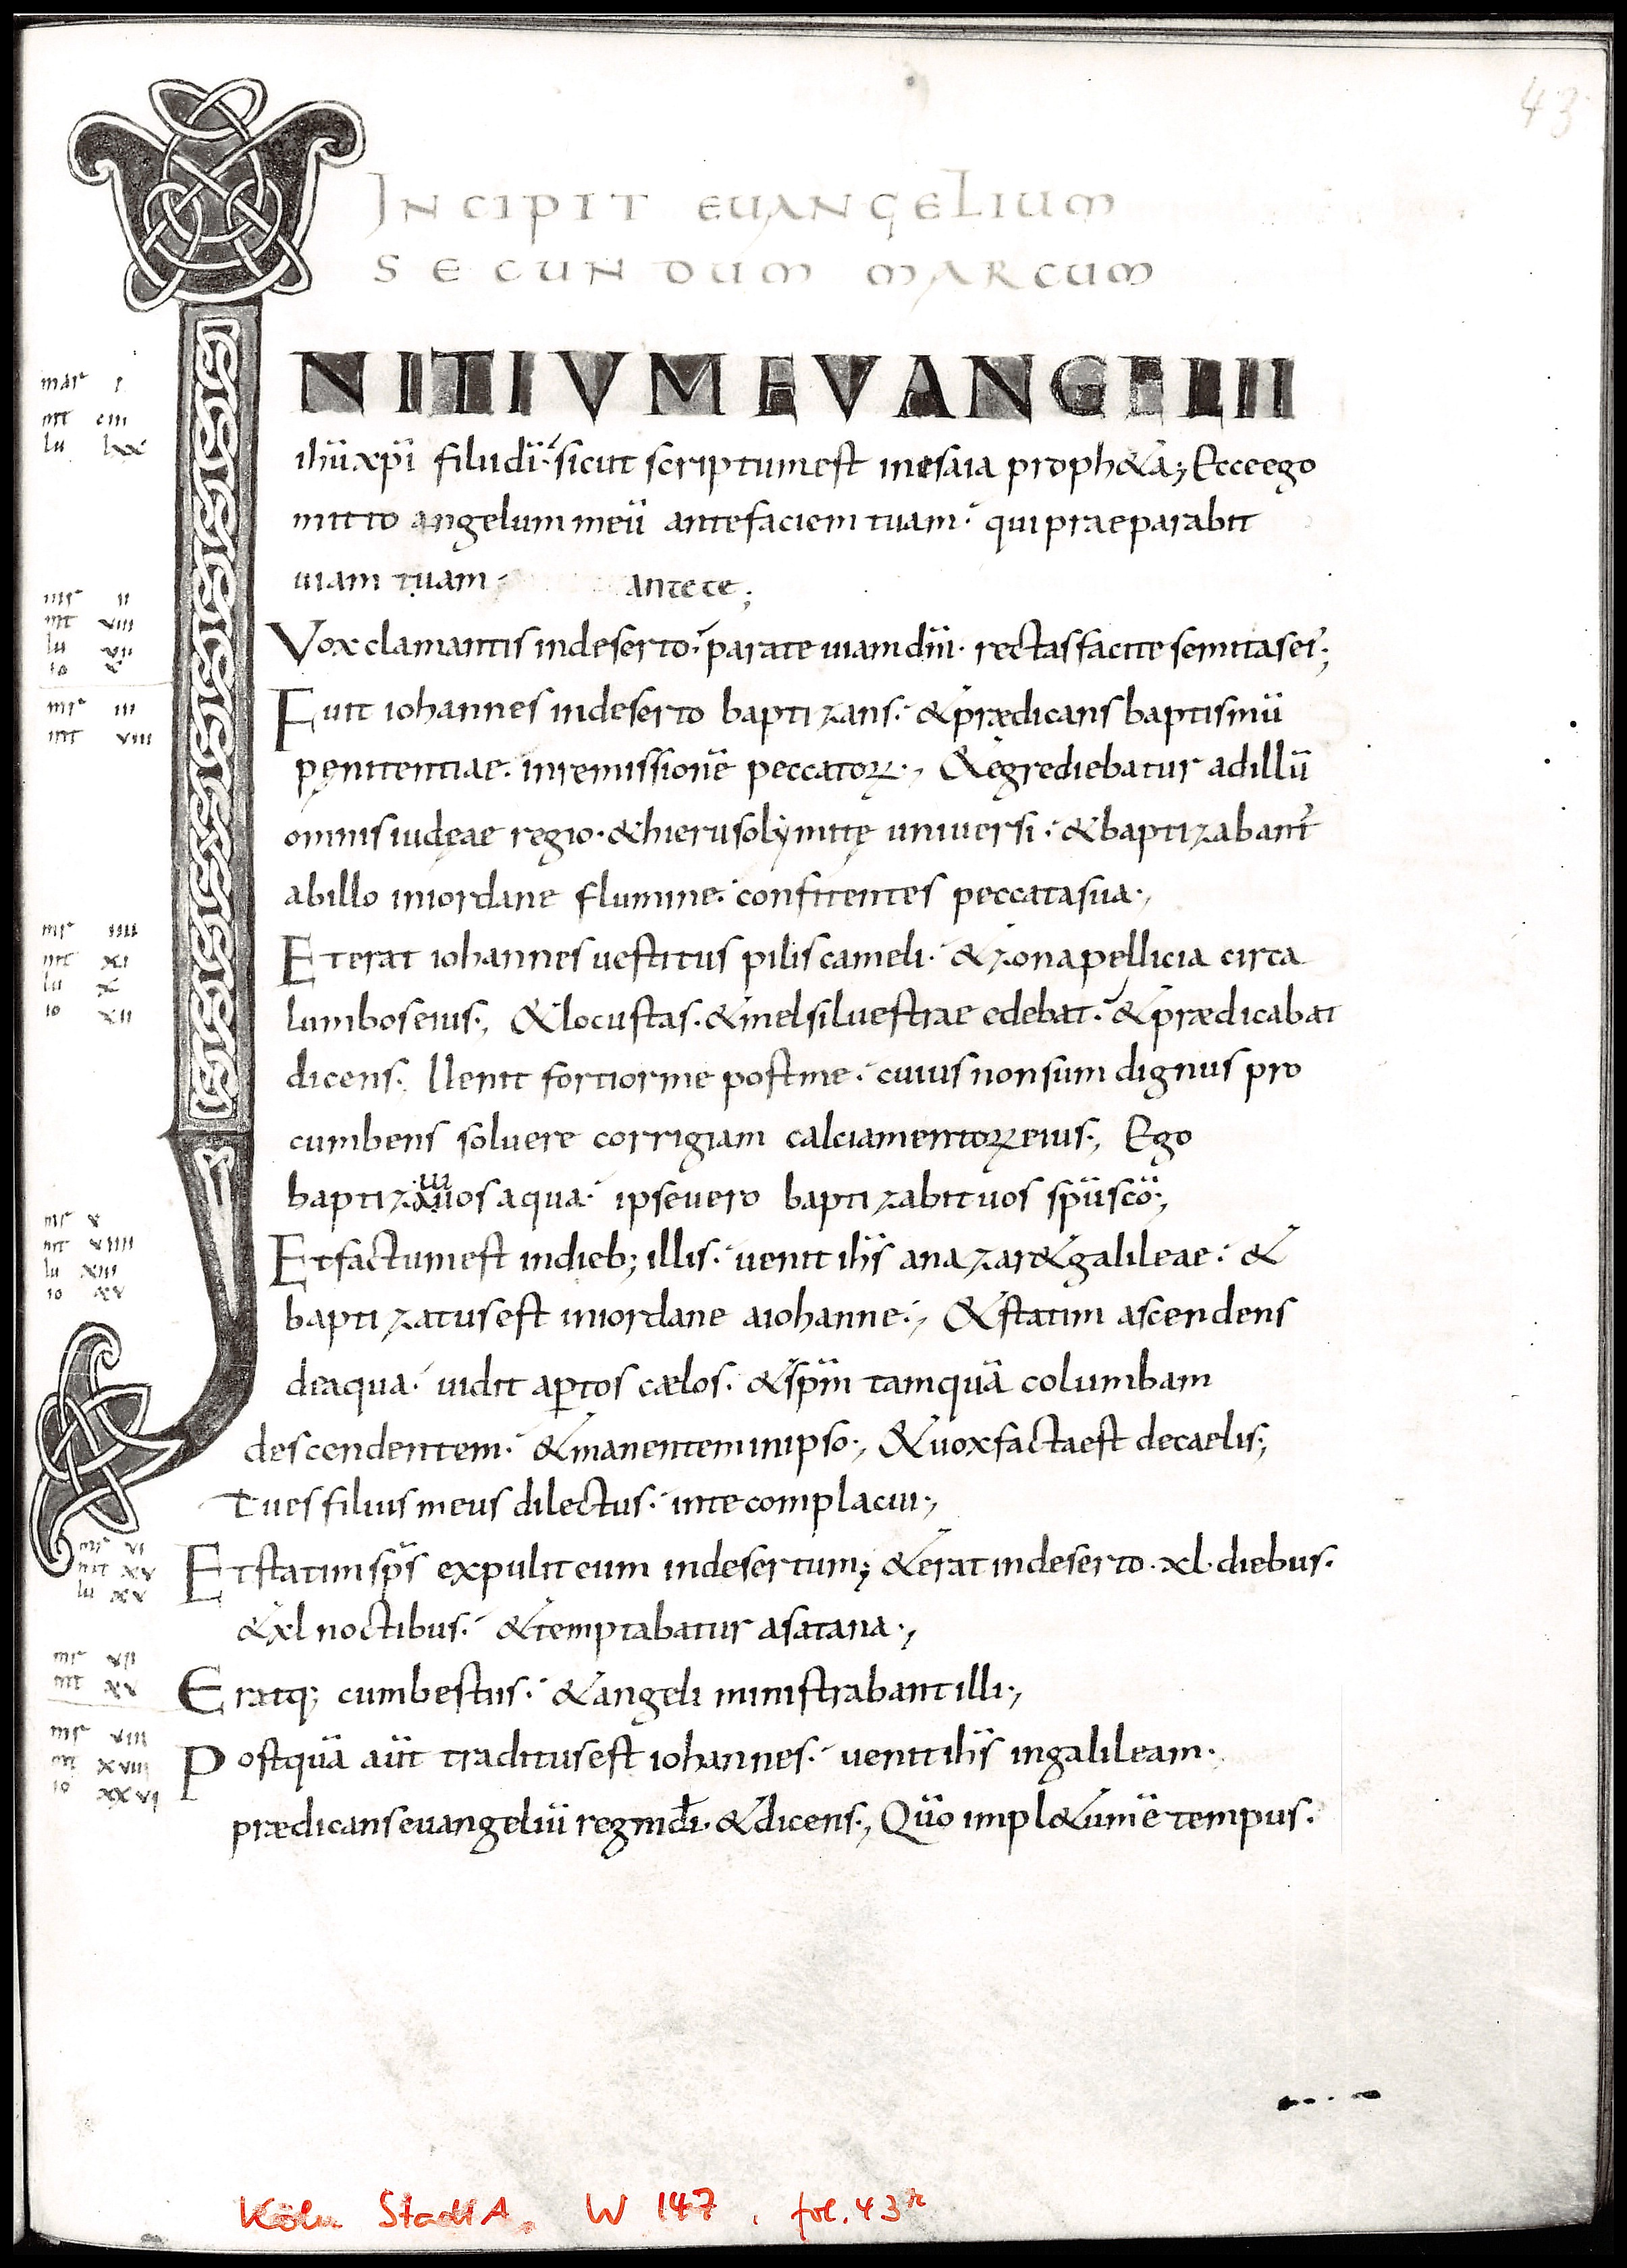 43
INCIPIT EUANGELIUM
SECUNDUM MARCUM
INITIVM EVANGELII
mar I
mt CIII
lu LXX
ihū xpī filii dī sicut scriptum est in esaia proph&a; Ecce ego
mitto angelum meū ante faciem tuam. qui praeparabit
uiam tuam. ante te;
mr II
mt VIII
lu VII
io X
Vox clamantis in deserto. parate uiam dnī. rectas facite semitas ei';
mr III
mt VIII
Fuit iohannes in deserto baptizans. & prædicans baptismū
pęnitentiae. in remissionē peccatoꝝ., & egrediebatur ad illū
omnis iudęae regio. & hierusolymitę uniuersi. & baptizabant'
ab illo in iordane flumine. confitentes peccata sua.,
mr IIII
mt XI
lu X
io XII
Et erat iohannes uestitus pilis cameli. & zona pellicia circa
lumbos eius., & locustas. & mel siluestrae edebat. & prædicabat
dicens. Uenit fortior me post me. cuius non sum dignus pro
cumbens soluere corrigiam calciamentoꝝ eius., Ego
baptizaui uos aqua. ipse uero baptizabit uos spū scō.,
mr V
mt XIIII
lu XIII
io XV
Et factum est in dieb; illis. uenit ihs a nazar& galileae. &
baptizatus est in iordane a iohanne., & statim ascendens
de aqua. uidit aꝑtos cælos. & spm tamquā columbam
descendentem. & manentem in ipso., & uox facta est de caelis.,
Tu es filius meus dilectus. in te complacui.,
mr VI
mt XV
lu XV
Et statim sps expulit eum in desertum; & erat in deserto. xl. diebus.
& xl noctibus. & temptabatur a satana.,
mr VII
mt XV
Eratq; cum bestiis. & angeli ministrabant illi.,
mr VIII
mt XVIII
io XXVI
Postquā aūt traditus est iohannes. uenit ihs in galileam.
prædicans euangeliū regni dī. & dicens., Qūo impl&um ē tempus.
Köln StadtA. W 147, fol. 43r